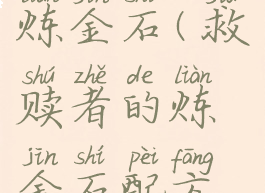 炼金石(救
shú zhě de liàn
赎者的炼
jīn shí pèi fāng
金石配方